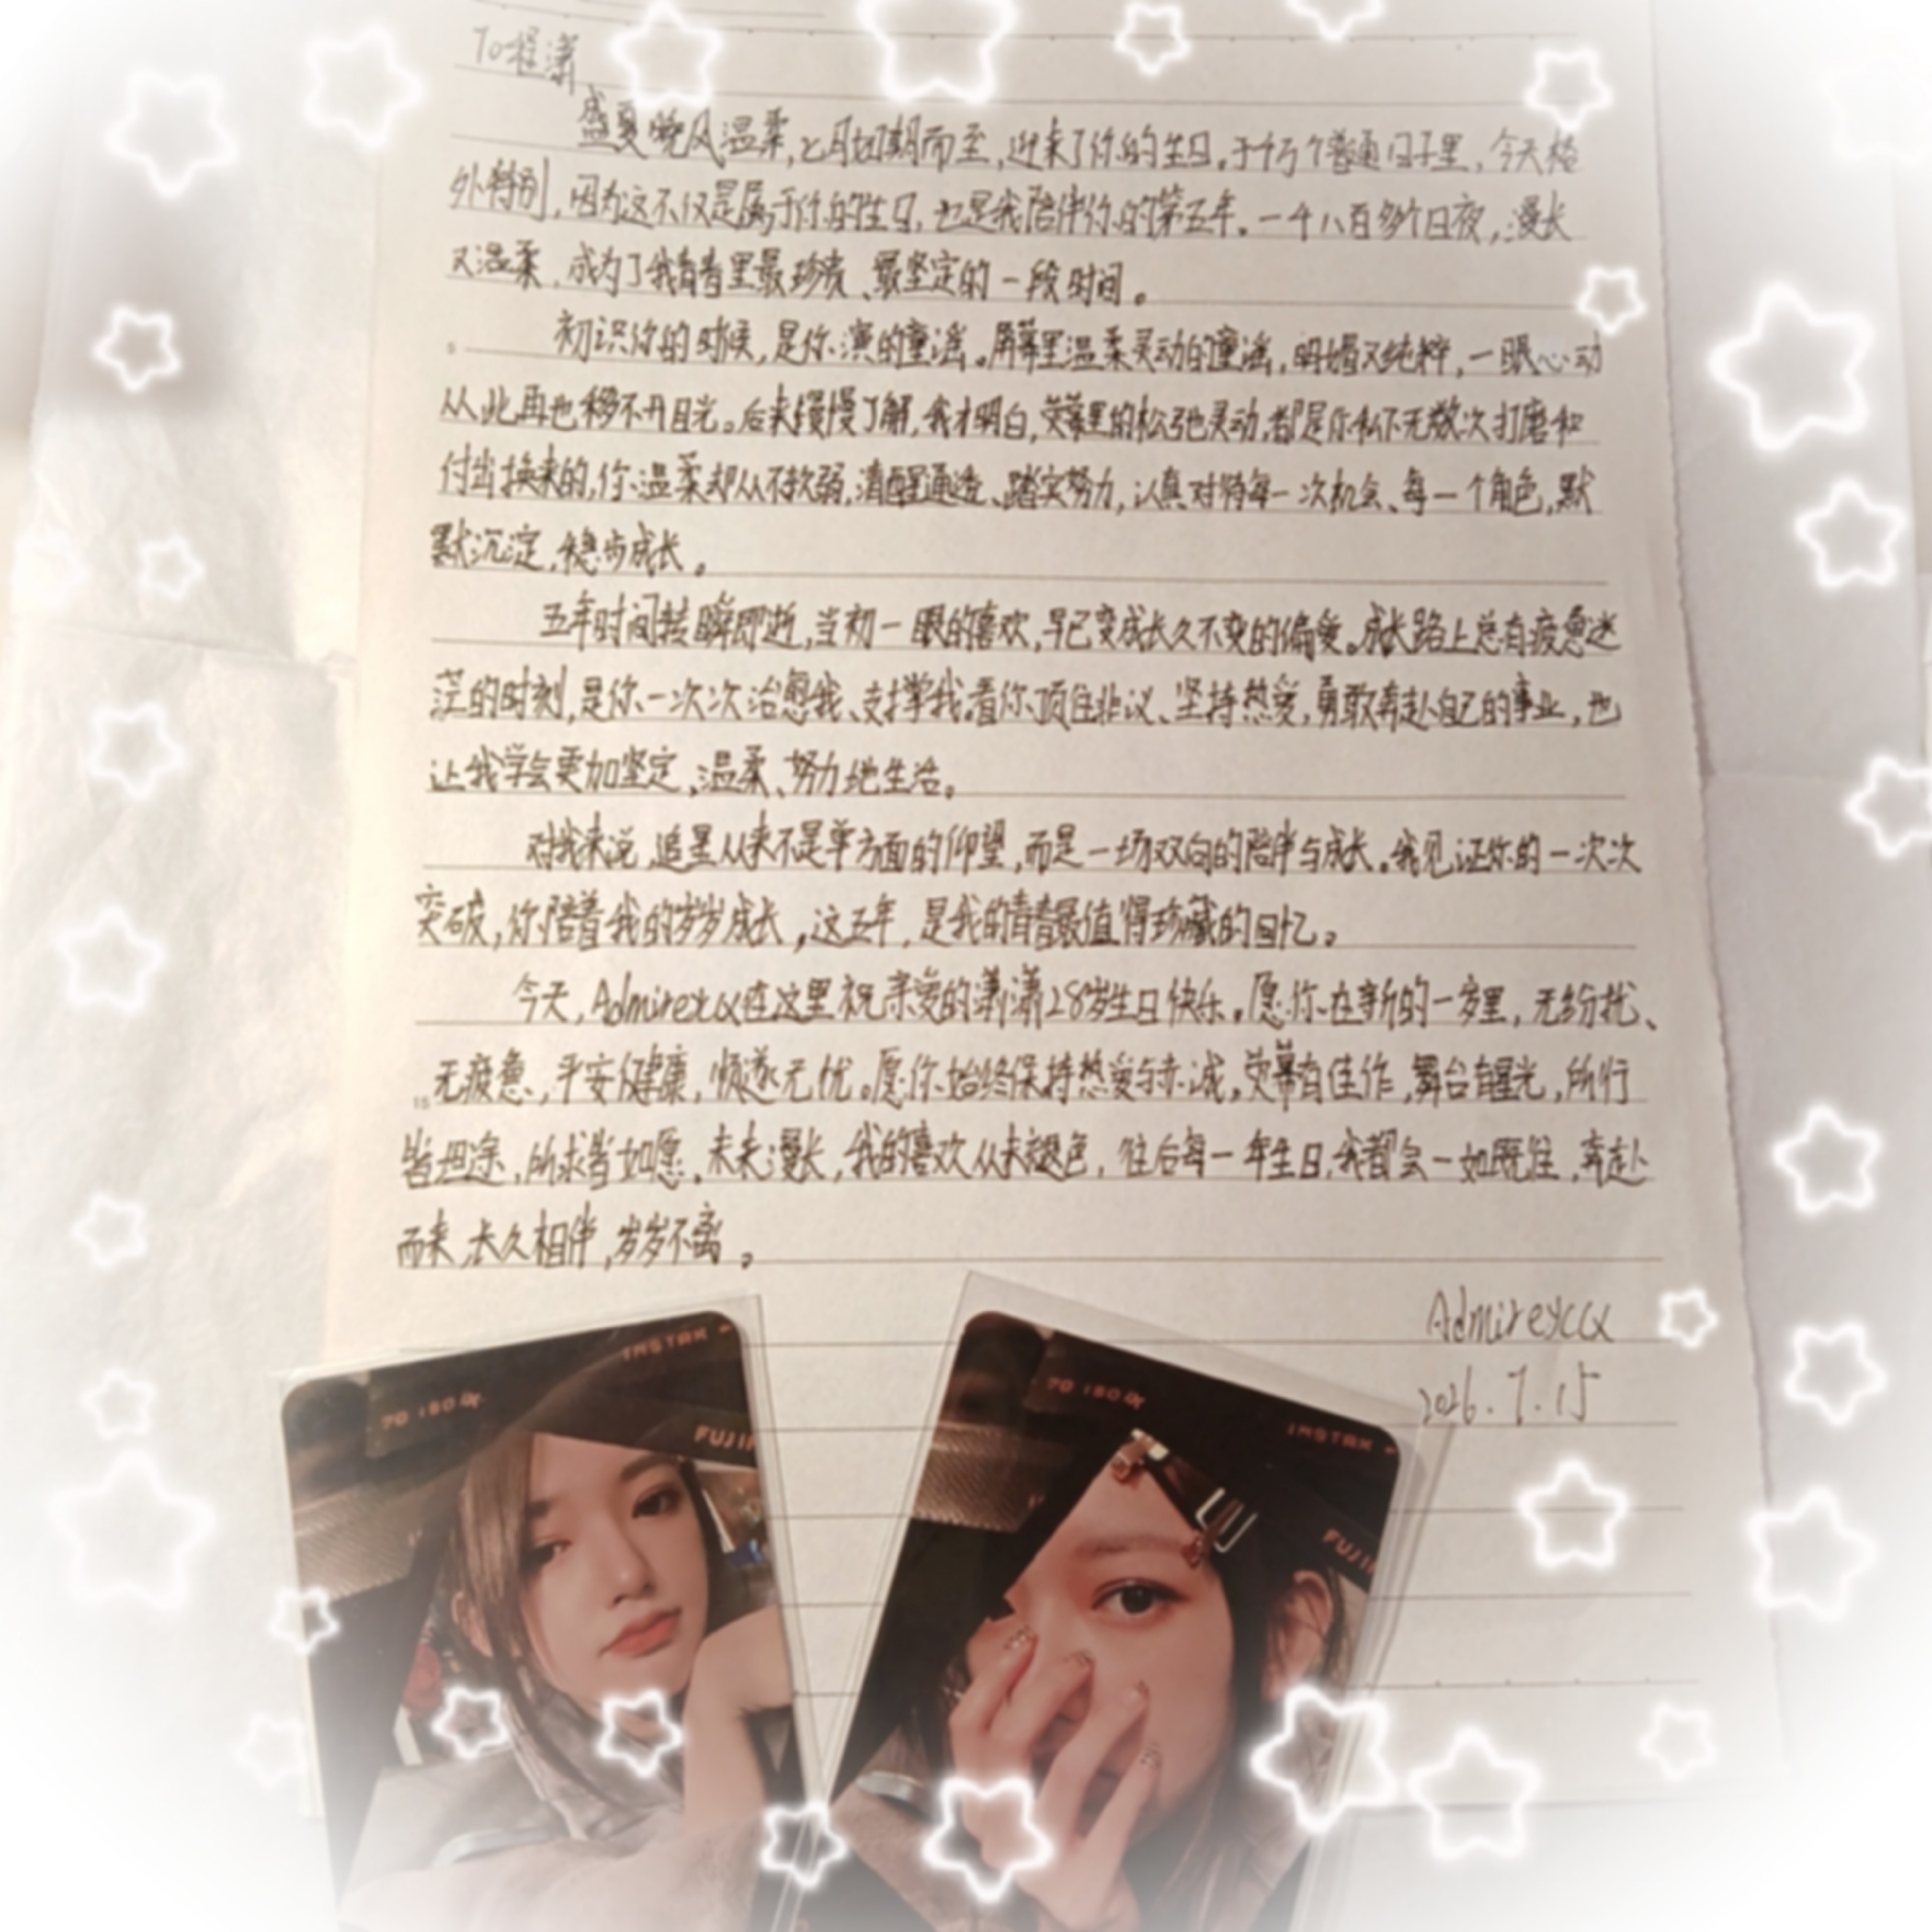 To程潇
盛夏晚风温柔,七月如期而至,迎来了你的生日。于千万个普通日子里,今天格
外特别,因为这不仅是属于你的生日,也是我陪伴你的第五年。一千八百多个日夜,漫长
又温柔,成为了我青春里最珍贵、最坚定的一段时间。
5
初识你的时候,是你演的童谣。屏幕里温柔灵动的童谣,明媚又纯粹,一眼心动
从此再也移不开目光。后来慢慢了解,我才明白,荧幕里的松弛灵动,都是你私下无数次打磨和
付出换来的,你温柔却从不软弱,清醒通透、踏实努力,认真对待每一次机会、每一个角色,默
默沉淀,稳步成长。
五年时间转瞬即逝,当初一眼的喜欢,早已变成长久不变的偏爱。成长路上总有疲惫迷
茫的时刻,是你一次次治愈我、支撑我。看你顶住非议、坚持热爱,勇敢奔赴自己的事业,也
让我学会更加坚定、温柔、努力地生活。
对我来说,追星从来不是单方面的仰望,而是一场双向的陪伴与成长。我见证你的一次次
突破,你陪着我的岁岁成长,这五年,是我的青春最值得珍藏的回忆。
今天,Admireycα在这里祝亲爱的潇潇28岁生日快乐。愿你在新的一岁里,无纷扰、
15
无疲惫,平安健康,顺遂无忧。愿你始终保持热爱与赤诚,荧幕有佳作,舞台有星光,所行
皆坦途,所求皆如愿。未来漫长,我的喜欢从未褪色,往后每一年生日,我都会一如既往,奔赴
而来,长久相伴,岁岁不离。
Admireyccα
2026.7.15
70 ISO
INSTAX
FUJI
70 ISO
INSTAX
FUJI